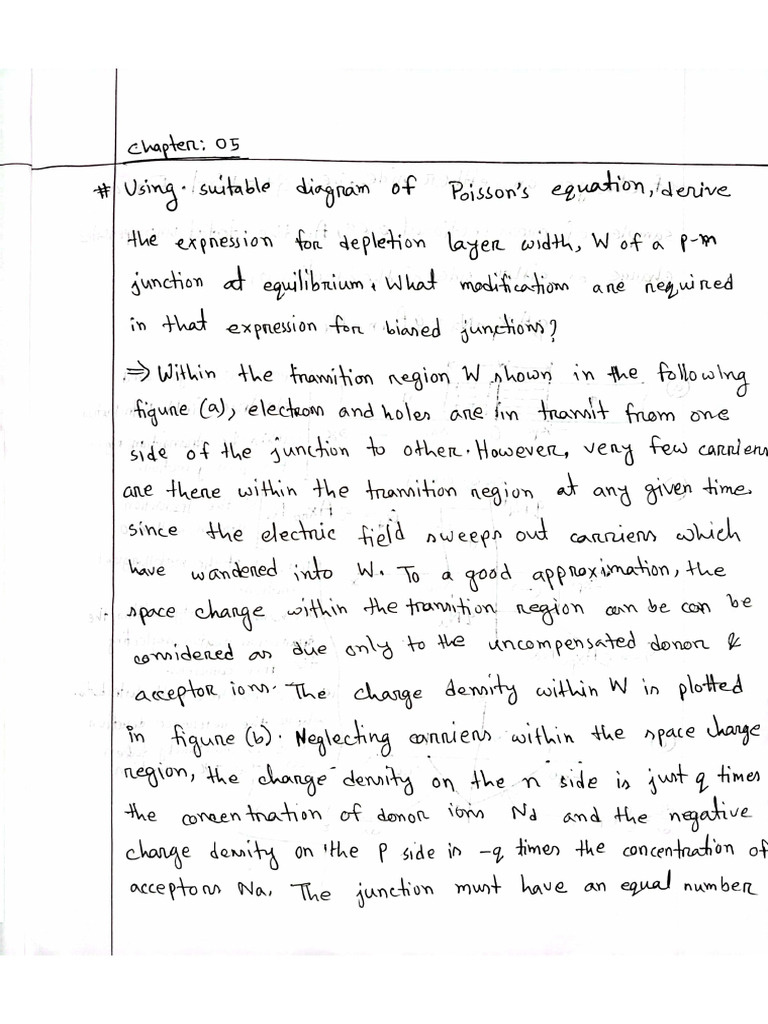 Chapter: 05
# Using suitable diagram of Poisson's equation, derive
the expression for depletion layer width, W of a p-n
junction at equilibrium. What modifications are required
in that expression for biased junctions?
⇒ Within the transition region W shown in the following
figure (a), electrons and holes are in transit from one
side of the junction to other. However, very few carriers
are there within the transition region at any given time.
since the electric field sweeps out carriers which
have wandered into W. To a good approximation, the
space charge within the transition region can be can be
considered as due only to the uncompensated donor &
acceptor ions. The charge density within W is plotted
in figure (b). Neglecting carriers within the space charge
region, the charge density on the n side is just q times
the concentration of donor ions Nd and the negative
charge density on the P side is -q times the concentration of
acceptors Na. The junction must have an equal number